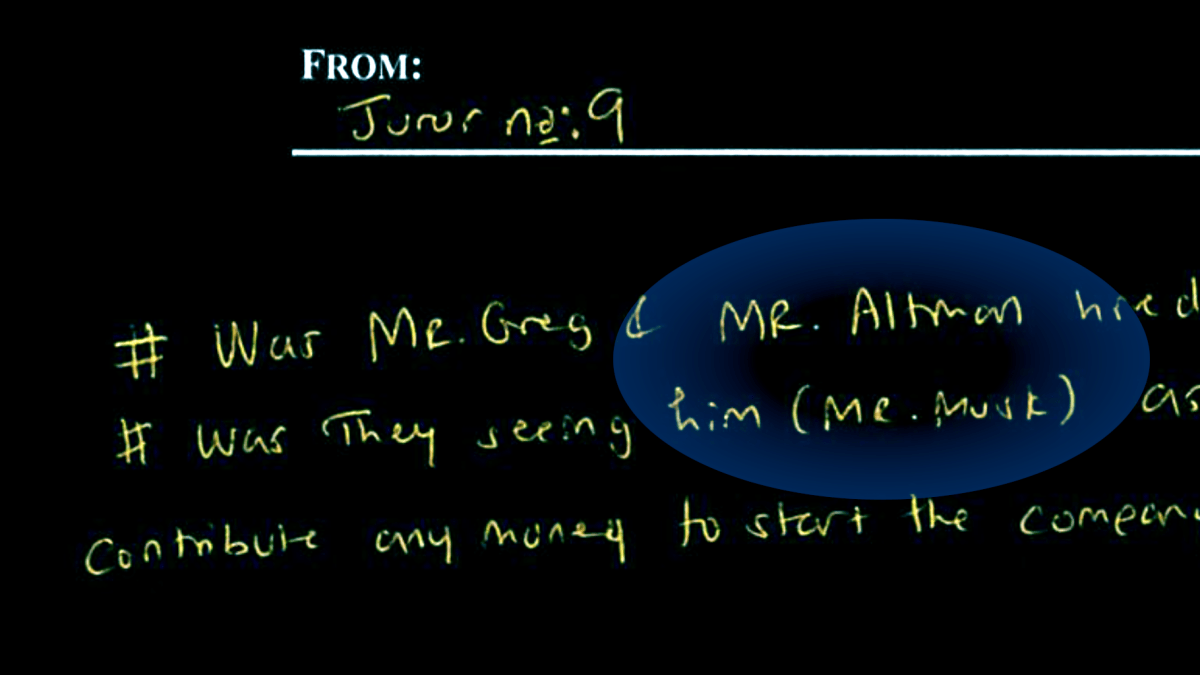 FROM:
Juror no: 9
# Was Mr. Greg & MR. Altman hired
# was They seeing him (Mr. Musk) as
Contribute any money to start the company